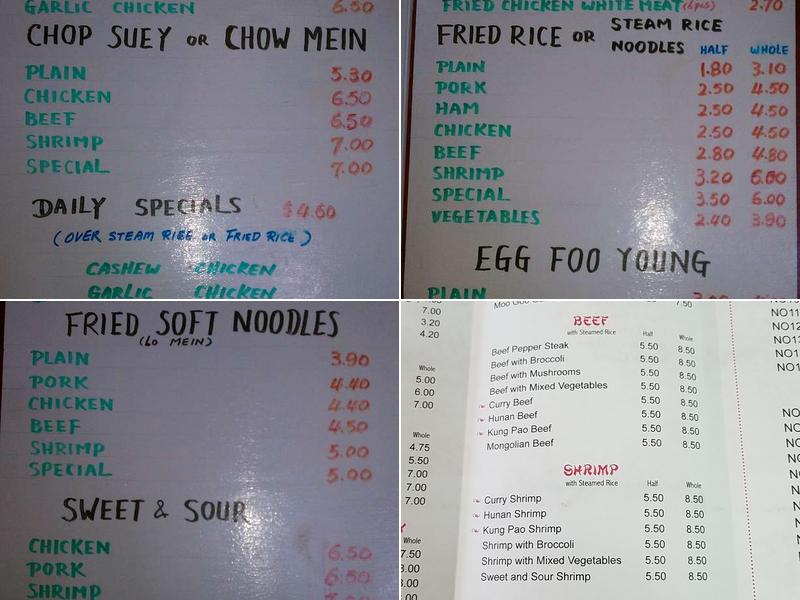 GARLIC CHICKEN 6.50
CHOP SUEY OR CHOW MEIN
PLAIN 5.30
CHICKEN 6.50
BEEF 6.50
SHRIMP 7.00
SPECIAL 7.00
DAILY SPECIALS $4.60
(OVER STEAM RICE OR FRIED RICE)
CASHEW CHICKEN
GARLIC CHICKEN
FRIED CHICKEN WHITE MEAT (6pcs) 2.70
FRIED RICE OR STEAM RICE
NOODLES HALF WHOLE
PLAIN 1.80 3.10
PORK 2.50 4.50
HAM 2.50 4.50
CHICKEN 2.50 4.50
BEEF 2.80 4.80
SHRIMP 3.20 6.00
SPECIAL 3.50 6.00
VEGETABLES 2.40 3.90
EGG FOO YOUNG
PLAIN
FRIED SOFT NOODLES
(LO MEIN)
PLAIN 3.90
PORK 4.40
CHICKEN 4.40
BEEF 4.50
SHRIMP 5.00
SPECIAL 5.00
SWEET & SOUR
CHICKEN 6.50
PORK 6.50
SHRIMP
7.00
3.20
4.20
Whole
5.00
6.00
7.00
Whole
4.75
5.50
7.00
7.00
7.00
Whole
7.50
Moo Goo 7.50
BEEF
with Steamed Rice Half Whole
Beef Pepper Steak 5.50 8.50
Beef with Broccoli 5.50 8.50
Beef with Mushrooms 5.50 8.50
Beef with Mixed Vegetables 5.50 8.50
Curry Beef 5.50 8.50
Hunan Beef 5.50 8.50
Kung Pao Beef 5.50 8.50
Mongolian Beef 5.50 8.50
SHRIMP
with Steamed Rice Half Whole
Curry Shrimp 5.50 8.50
Hunan Shrimp 5.50 8.50
Kung Pao Shrimp 5.50 8.50
Shrimp with Broccoli 5.50 8.50
Shrimp with Mixed Vegetables 5.50 8.50
Sweet and Sour Shrimp 5.50 8.50